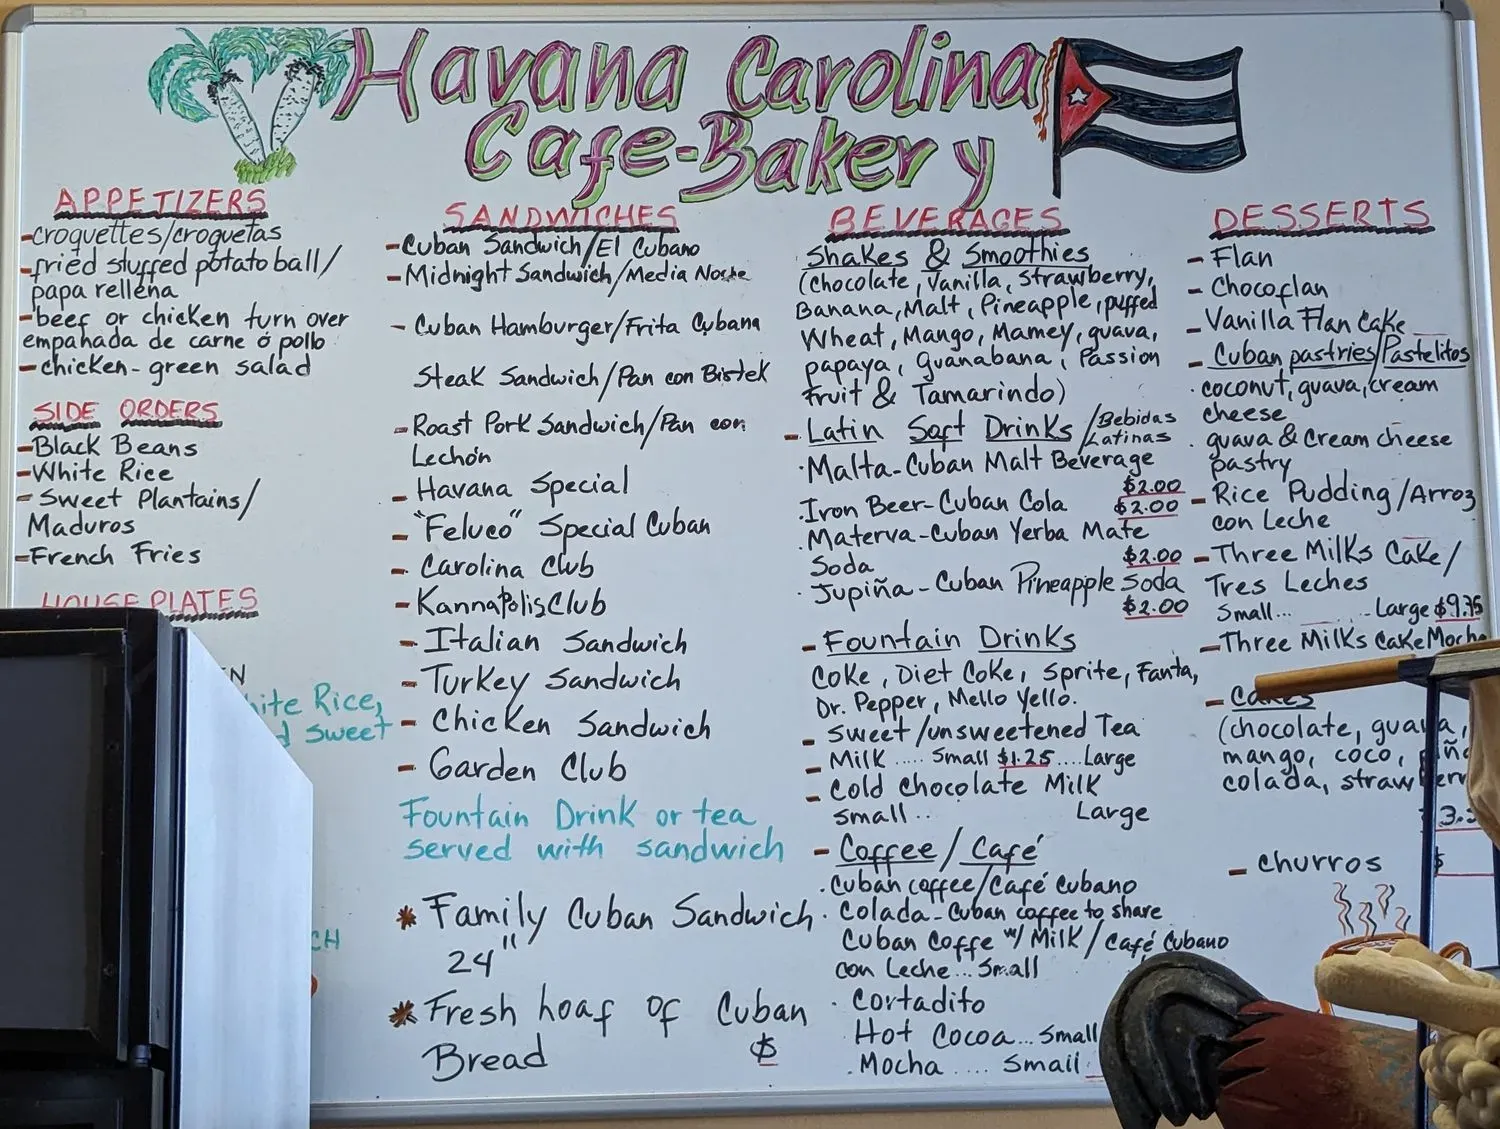 Havana Carolina
Cafe-Bakery
APPETIZERS
-croquettes/croquetas
-fried stuffed potato ball/
papa rellena
-beef or chicken turn over
empanada de carne ó pollo
-chicken-green salad
SIDE ORDERS
-Black Beans
-White Rice
-Sweet Plantains/
Maduros
-French Fries
HOUSE PLATES
Rice,
sweet
SANDWICHES
-Cuban Sandwich/El Cubano
-Midnight Sandwich/Media Noche
-Cuban Hamburger/Frita Cubana
Steak Sandwich/Pan con Bistek
-Roast Pork Sandwich/Pan con
Lechón
-Havana Special
-"Felueo" Special Cuban
-Carolina Club
-Kannapolis Club
-Italian Sandwich
-Turkey Sandwich
-Chicken Sandwich
-Garden Club
Fountain Drink or tea
served with sandwich
* Family Cuban Sandwich
24"
* Fresh hoaf of Cuban
Bread $
BEVERAGES
Shakes & Smoothies
(Chocolate, Vanilla, Strawberry,
Banana, Malt, Pineapple, puffed
Wheat, Mango, Mamey, guava,
papaya, guanabana, Passion
Fruit & Tamarindo)
-Latin Soft Drinks /Bebidas
Latinas
·Malta-Cuban Malt Beverage
$2.00
·Iron Beer-Cuban Cola $2.00
·Materva-Cuban Yerba Mate
Soda $2.00
·Jupiña-Cuban Pineapple Soda
$2.00
-Fountain Drinks
Coke, Diet Coke, Sprite, Fanta,
Dr. Pepper, Mello Yello.
-Sweet/unsweetened Tea
-Milk ..... Small $1.25....Large
-Cold Chocolate Milk
small.. Large
-Coffee/Café
·Cuban coffee/Café Cubano
·Colada-Cuban coffee to share
Cuban Coffe w/ Milk/Café Cubano
con Leche...Small
·Cortadito
Hot Cocoa...Small
·Mocha .... Small
DESSERTS
-Flan
-Chocoflan
-Vanilla Flan Cake
-Cuban pastries/Pastelitos
·coconut, guava, cream
cheese
·guava & Cream cheese
pastry
-Rice Pudding/Arroz
con Leche
-Three Milks Cake/
Tres Leches
Small... Large $9.75
-Three Milks Cake Mocha
-Cakes
(chocolate, guava,
mango, coco,
colada,
-churros
$